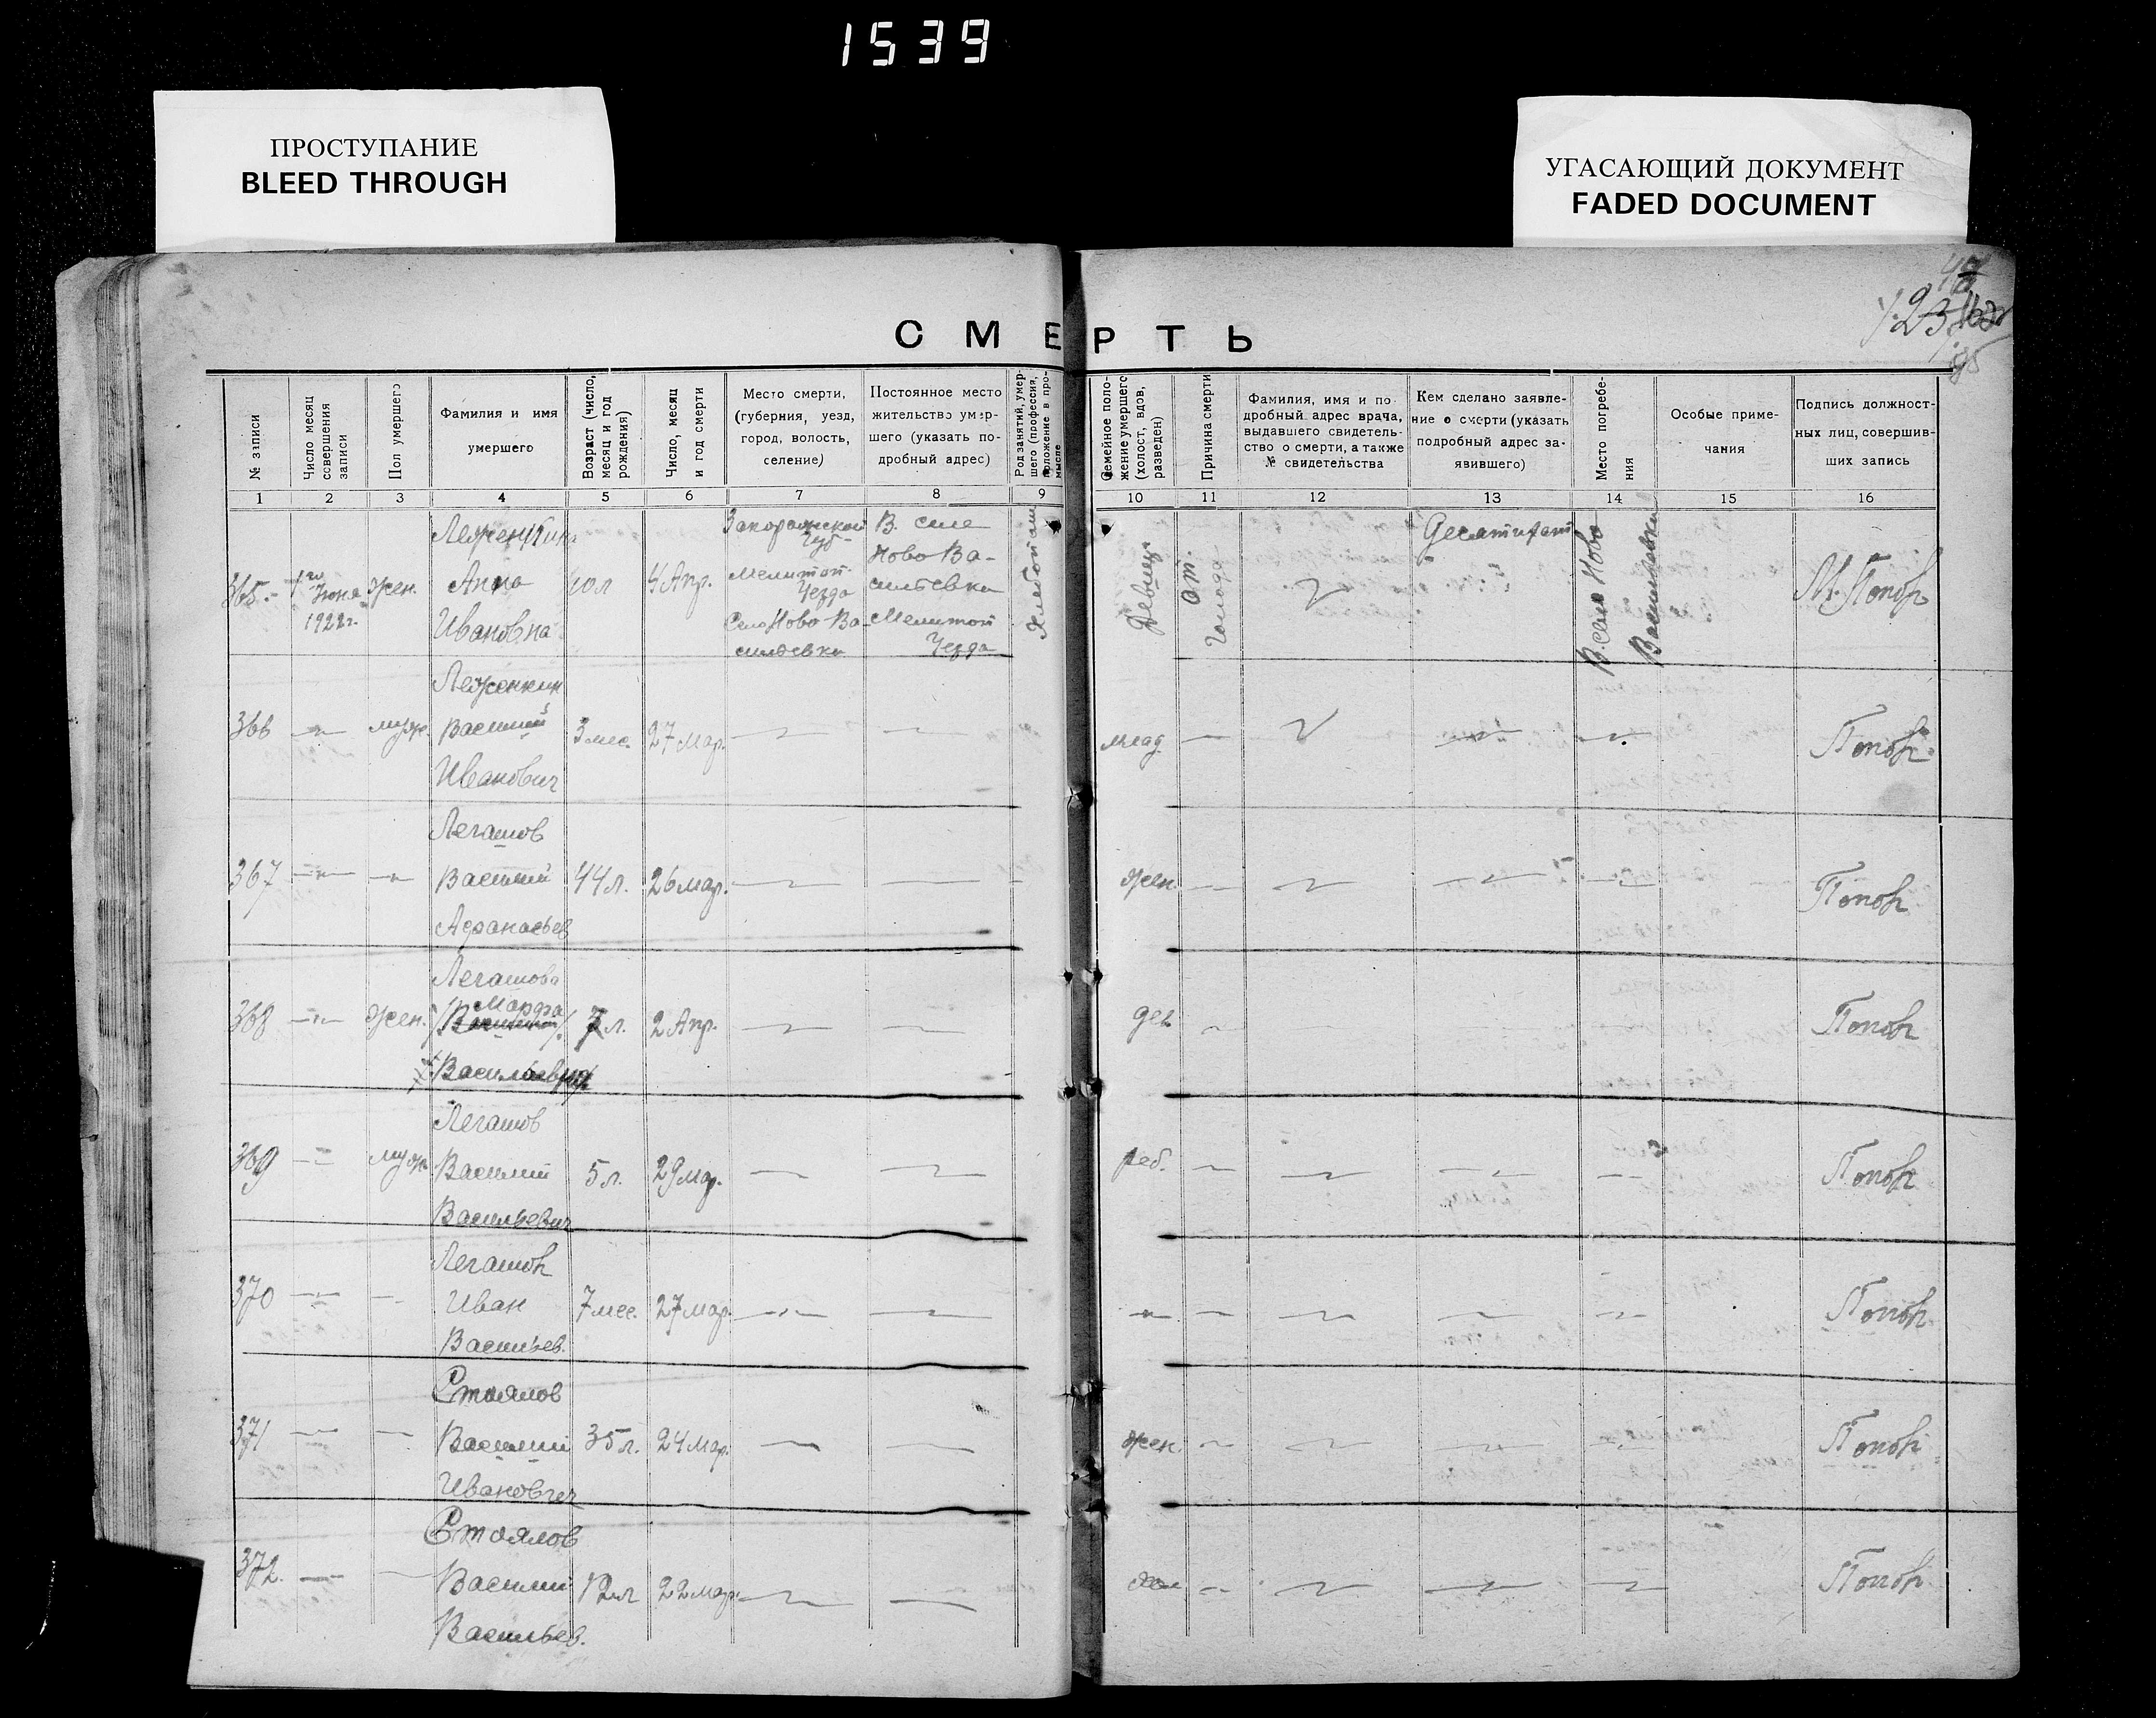 1539
ПРОСТУПАНИЕ
BLEED THROUGH
УГАСАЮЩИЙ ДОКУМЕНТ
FADED DOCUMENT
СМЕРТЬ
№ записи
Число месяц совершения записи
Пол умершего
Фамилия и имя умершего
Возраст (число, месяц и год рождения)
Число, месяц и год смерти
Место смерти, (губерния, уезд, город, волость, селение)
Постоянное место жительство умершего (указать подробный адрес)
Род занятий, умершего (профессия, положение в промысле
Семейное положение умершего (холост, вдов, разведен)
Причина смерти
Фамилия, имя и подробный адрес врача, выдавшего свидетельство о смерти, а также № свидетельства
Кем сделано заявление о смерти (указать подробный адрес заявившего)
Место погребения
Особые примечания
Подпись должностных лиц, совершивших запись
1 2 3 4 5 6 7 8 9 10 11 12 13 14 15 16
365. 1го Июня 1922г. Жен.
Анна
Ивановна
10л 4 Апр.
Запорожской Губ-
Мелитоп. Уезда
Село Ново Ва-
сильевка
В. селе
Ново Ва-
сильевки
Мелитоп
Уезда
Девица
От Голода
В селе Ново Васильевки
М. Попов
366 муж.
Леженкин
Василий
Иванович
3 мес. 27 Мар.
млад
Попов
367
Легашов
Василий
Афанасьев
44 л. 26 мар.
жен.
Попов
368 жен.
Легашова
Марфа
Васильевна
7 л. 2 Апр.
дев
Попов
369 муж
Легашов
Василий
Васильевич
5 л. 29 мар.
реб.
Попов
370
Легашов
Иван
Васильев.
7 мес. 27 мар.
Попов
371
Стоялов
Василий
Иванович
35 л. 24 мар.
жен.
Попов
372.
Стоялов
Василий
Васильев.
12 л 22 мар.
хол
Попов